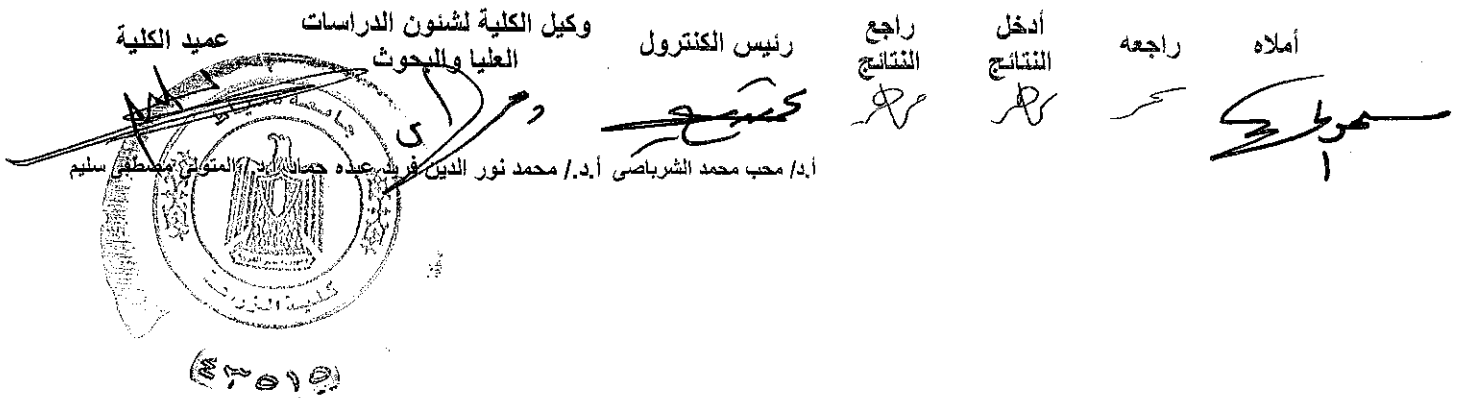 أملاه
راجعه
أدخل
النتائج
راجع
النتائج
رئيس الكنترول
وكيل الكلية لشئون الدراسات
العليا والبحوث
عميد الكلية
أ.د/ محب محمد الشرباصى
أ.د./ محمد نور الدين فريد عبده حماد
أ.د./ المتولى مصطفى سليم
كلية الزراعة